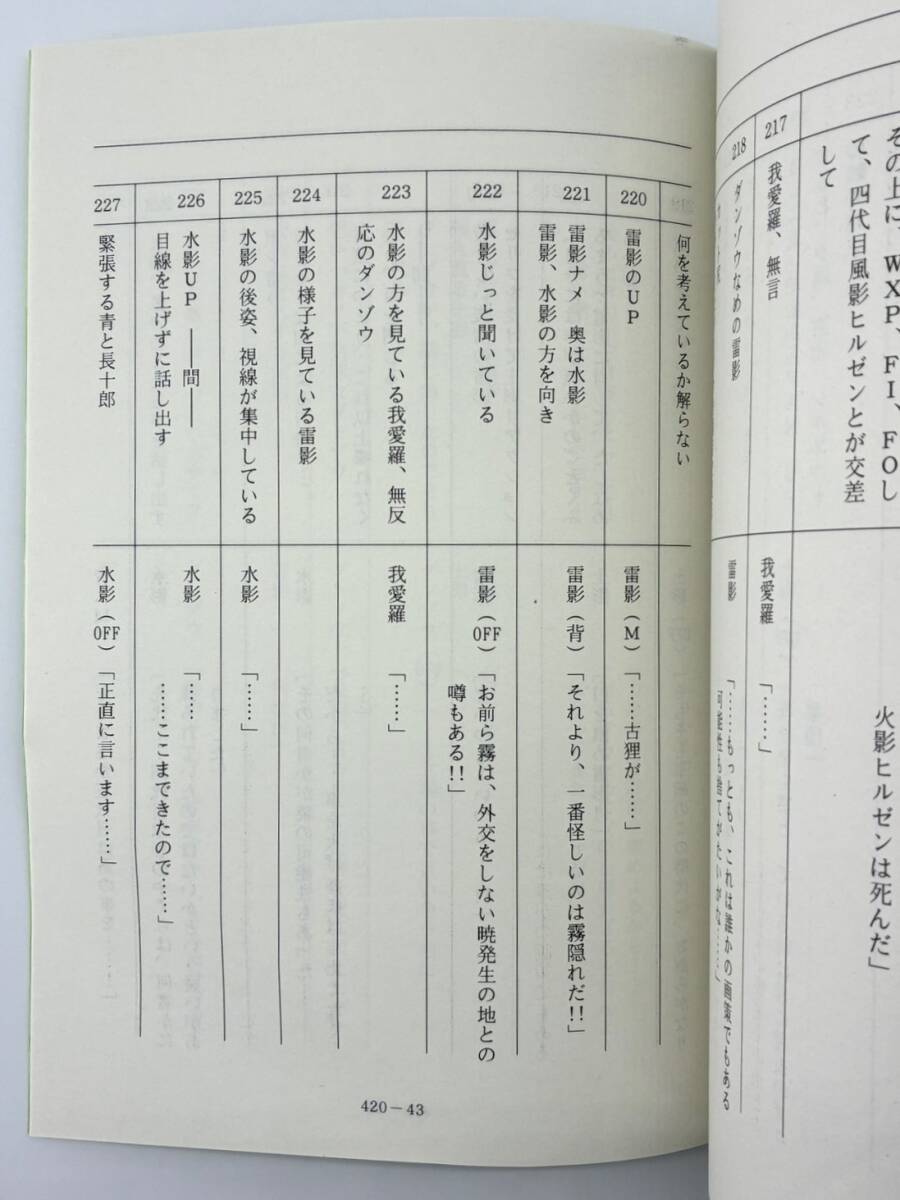 その上に、WXP、FI、FOし
て、四代目風影ヒルゼンとが交差
して
火影ヒルゼンは死んだ」
217
我愛羅、無言
我愛羅
「……」
218
ダンゾウなめの雷影
雷影
「……もっとも、これは誰かの画策でもある
可能性も捨てがたいがな……」
何を考えているか解らない
220
雷影のUP
雷影(M)「……古狸が……」
221
雷影ナメ 奥は水影
雷影、水影の方を向き
雷影(背)「それより、一番怪しいのは霧隠れだ!!」
222
水影じっと聞いている
雷影(OFF)「お前ら霧は、外交をしない暁発生の地との
噂もある!!」
223
水影の方を見ている我愛羅、無反
応のダンゾウ
我愛羅 「……」
224
水影の様子を見ている雷影
225
水影の後姿、視線が集中している
水影 「……」
226
水影UP ――間――
目線を上げずに話し出す
水影 「……
……ここまできたので……」
227
緊張する青と長十郎
水影(OFF)「正直に言います……」
420-43